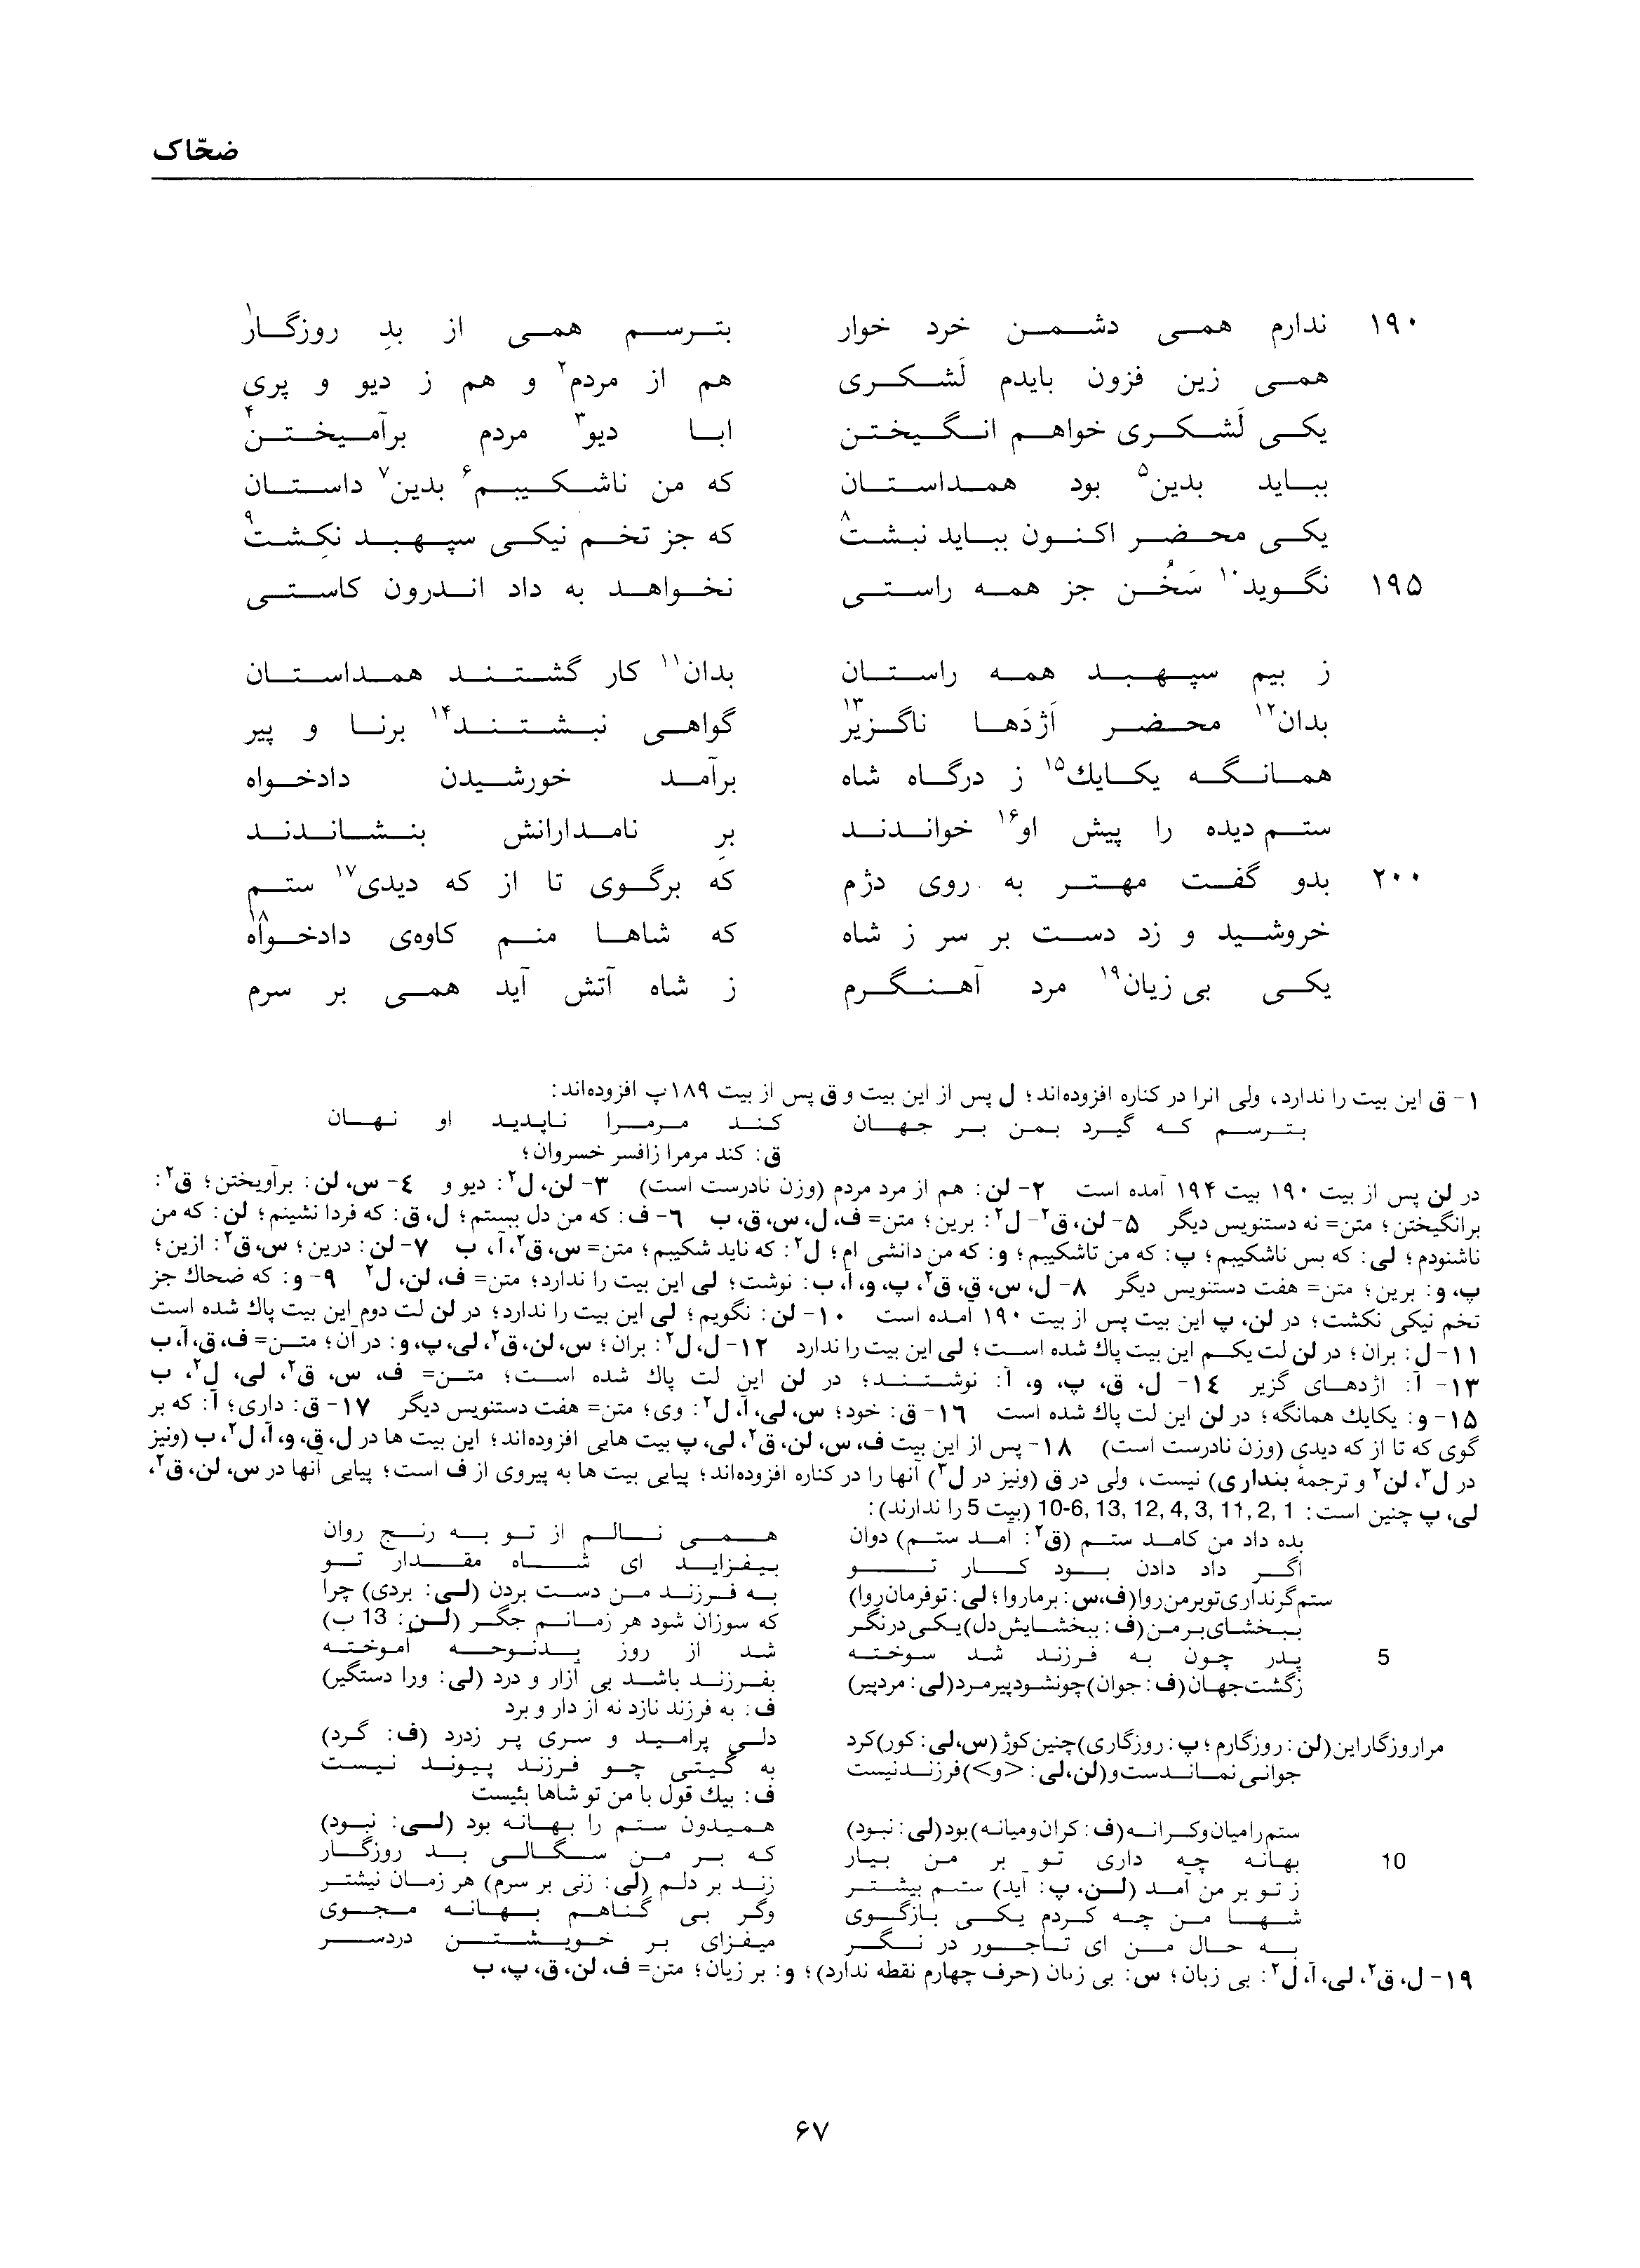 ضحّاک
۱۹۰ ندارم همی دشمن خرد خوار بترسم همی از بدِ روزگار۱
همی زین فزون بایدم لَشکری هم از مردم۲ و هم ز دیو و پری
یکی لَشکری خواهم انگیختن ابا دیو۳ مردم برآمیختن۴
بباید بدین۵ بود همداستان که من ناشکیبم۶ بدین۷ داستان
یکی محضر اکنون بباید نبشت۸ که جز تخم نیکی سپهبد نکِشت۹
۱۹۵ نگوید۱۰ سَخُن جز همه راستی نخواهد به داد اندرون کاستی
ز بیم سپهبد همه راستان بدان۱۱ کار گشتند همداستان
بدان۱۲ محضر اَژدَها ناگزیر۱۳ گواهی نبشتند۱۴ برنا و پیر
همانگه یکایك۱۵ ز درگاه شاه برآمد خورشیدن دادخواه
ستم دیده را پیش او۱۶ خواندند بر نامدارانش بنشاندند
۲۰۰ بدو گفت مهتر به روی دژم که برگوی تا از که دیدی۱۷ ستم
خروشید و زد دست بر سر ز شاه که شاها منم کاوه‌ی دادخواه۱۸
یکی بی زیان۱۹ مرد آهنگرم ز شاه آتش آید همی بر سرم
۱- ق این بیت را ندارد، ولی انرا در کناره افزوده‌اند؛ ل پس از این بیت و ق پس از بیت ۱۸۹پ افزوده‌اند:
بترسم که گیرد بمن بر جهان کند مرمرا ناپدید او نهان
ق: کند مرمرا زافسر خسروان؛
در لن پس از بیت ۱۹۰ بیت ۱۹۴ آمده است ۲- لن: هم از مرد مردم (وزن نادرست است) ۳- لن، ل۲: دیو و ۴- س، لن: برآویختن؛ ق۲:
برانگیختن؛ متن= نه دستنویس دیگر ۵- لن، ق۲- ل۲: برین؛ متن= ف، ل، س، ق، ب ۶- ف: که من دل ببستم؛ ل، ق: که فردا نشینم؛ لن: که من
ناشنودم؛ لی: که بس ناشکیبم؛ پ: که من تاشکیبم؛ و: که من دانشی ام؛ ل۲: که ناید شکیبم؛ متن= س، ق۲، آ، ب ۷- لن: درین؛ س، ق۲: ازین؛
پ، و: برین؛ متن= هفت دستنویس دیگر ۸- ل، س، ق، ق۲، پ، و، آ، ب: نوشت؛ لی این بیت را ندارد؛ متن= ف، لن، ل۲ ۹- و: که ضحاك جز
تخم نیکی نکشت؛ در لن، پ این بیت پس از بیت ۱۹۰ آمده است ۱۰- لن: نگویم؛ لی این بیت را ندارد؛ در لن لت دوم این بیت پاك شده است
۱۱- ل: بران؛ در لن لت یکم این بیت پاك شده است؛ لی این بیت را ندارد ۱۲- ل، ل۲: بران؛ س، لن، ق۲، لی، پ، و: در آن؛ متن= ف، ق، آ، ب
۱۳- آ: اژدهای گزیر ۱۴- ل، ق، پ، و، آ: نوشتند؛ در لن این لت پاك شده است؛ متن= ف، س، ق۲، لی، ل۲، ب
۱۵- و: یکایك همانگه؛ در لن این لت پاك شده است ۱۶- ق: خود؛ س، لی، آ، ل۲: وی؛ متن= هفت دستنویس دیگر ۱۷- ق: داری؛ آ: که بر
گوی که تا از که دیدی (وزن نادرست است) ۱۸- پس از این بیت ف، س، لن، ق۲، لی، پ بیت هایی افزوده‌اند؛ این بیت ها در ل، ق، و، آ، ل۲، ب (ونیز
در ل۳، لن۲ و ترجمهٔ بنداری) نیست، ولی در ق (ونیز در ل۳) آنها را در کناره افزوده‌اند؛ پیایی بیت ها به پیروی از ف است؛ پیایی آنها در س، لن، ق۲،
لی، پ چنین است: 1 ,2 ,11 ,3 ,4 ,12 ,13 ,6-10 (بیت 5 را ندارند):
بده داد من کامد ستم (ق۲: آمد ستم) دوان همی نالم از تو به رنج روان
اگر داد دادن بود کار تو بیفزاید ای شاه مقدار تو
ستم گر نداری تو بر من روا (ف، س: برما روا؛ لی: تو فرمان روا) به فرزند من دست بردن (لی: بردی) چرا
ببخشای بر من (ف: ببخشایش دل) یکی در نگر که سوزان شود هر زمانم جگر (لن: 13 ب)
5 پدر چون به فرزند شد سوخته شد از روز بدنوحه آموخته
زگشت جهان (ف: جوان) چونشود پیرمرد (لی: مردپیر) بفرزند باشد بی آزار و درد (لی: ورا دستگیر)
ف: به فرزند نازد نه از دار و برد
مرا روزگار این (لن: روزگارم؛ پ: روزگاری) چنین کوژ (س، لی: کور) کرد دلی پرامید و سری پر زدرد (ف: گرد)
جوانی نماندست و (لن، لی: <و>) فرزند نیست به گیتی چو فرزند پیوند نیست
ف: بیك قول با من تو شاها بئیست
ستم را میان و کرانه (ف: کران و میانه) بود (لی: نبود) همیدون ستم را بهانه بود (لی: نبود)
10 بهانه چه داری تو بر من بیار که بر من سگالی بد روزگار
ز تو بر من آمد (لن، پ: آید) ستم بیشتر زند بر دلم (لی: زنی بر سرم) هر زمان نیشتر
شها من چه کردم یکی بازگوی وگر بی گناهم بهانه مجوی
به حال من ای تاجور در نگر میفزای بر خویشتن دردسر
۱۹- ل، ق۲، لی، آ، ل۲: بی زبان؛ س: بی زٮان (حرف چهارم نقطه ندارد)؛ و: بر زیان؛ متن= ف، لن، ق، پ، ب
۶۷